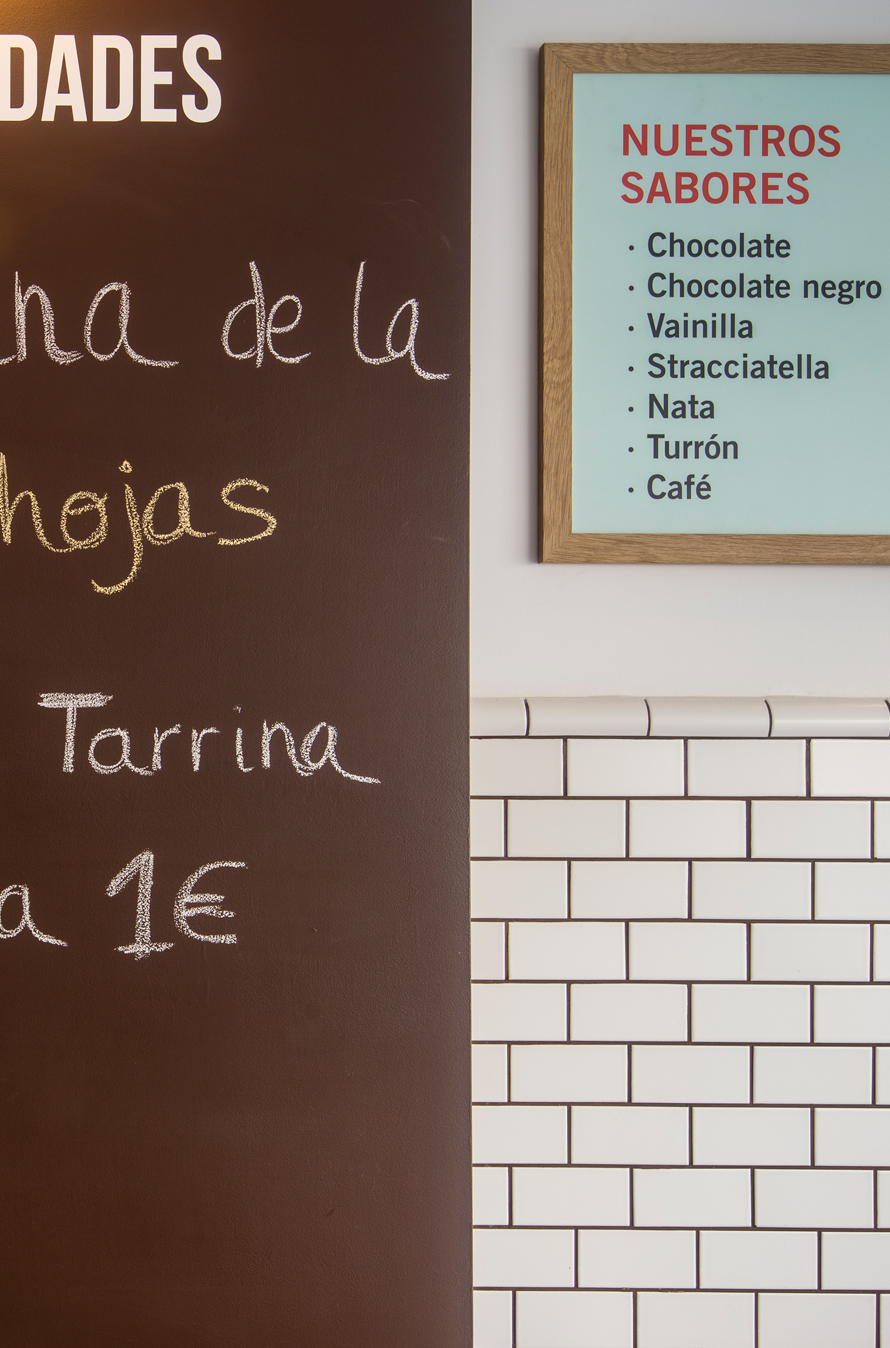 DADES
de la
hojas
Tarrina
a 1€
NUESTROS
SABORES
· Chocolate
· Chocolate negro
· Vainilla
· Stracciatella
· Nata
· Turrón
· Café